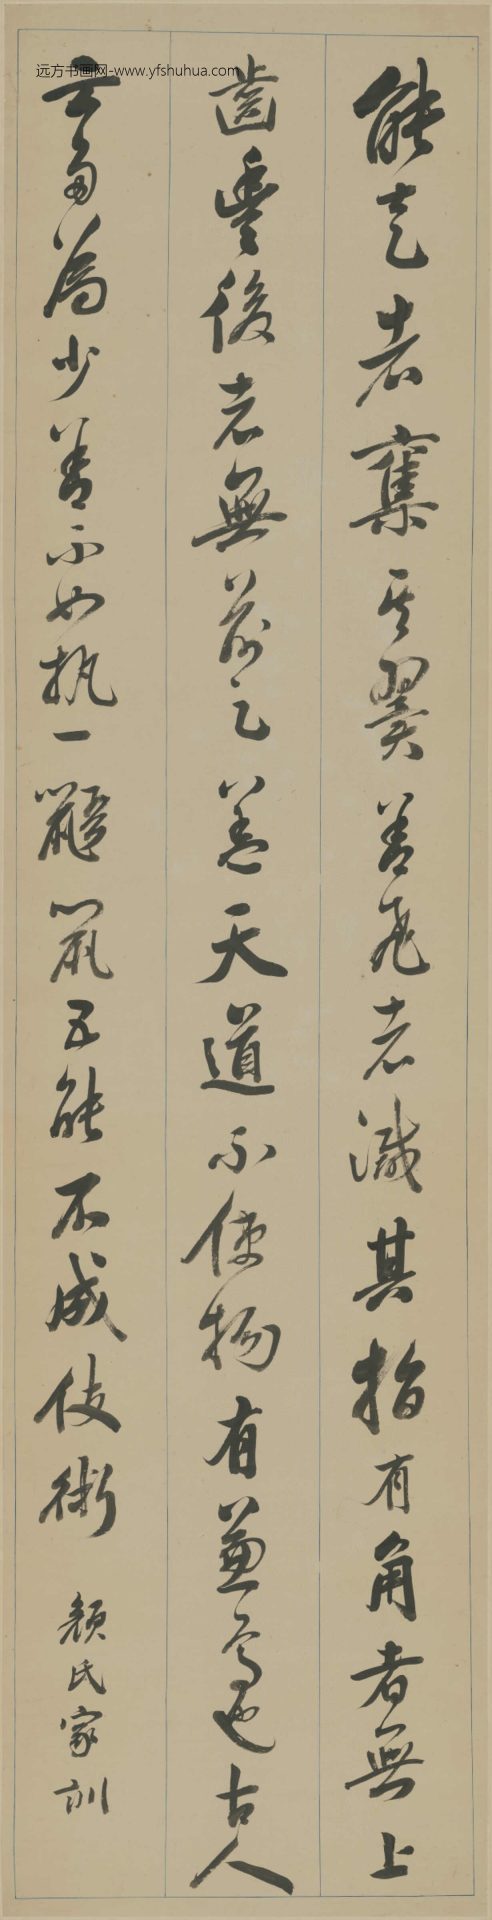 远方书画网-www.yfshuhua.com
能走者奪其翼善飛者減其指有角者無上
齒豐後者無前足蓋天道不使物有兼焉也古人
云多為少善不如執一鼯鼠五能不成伎術 顏氏家訓